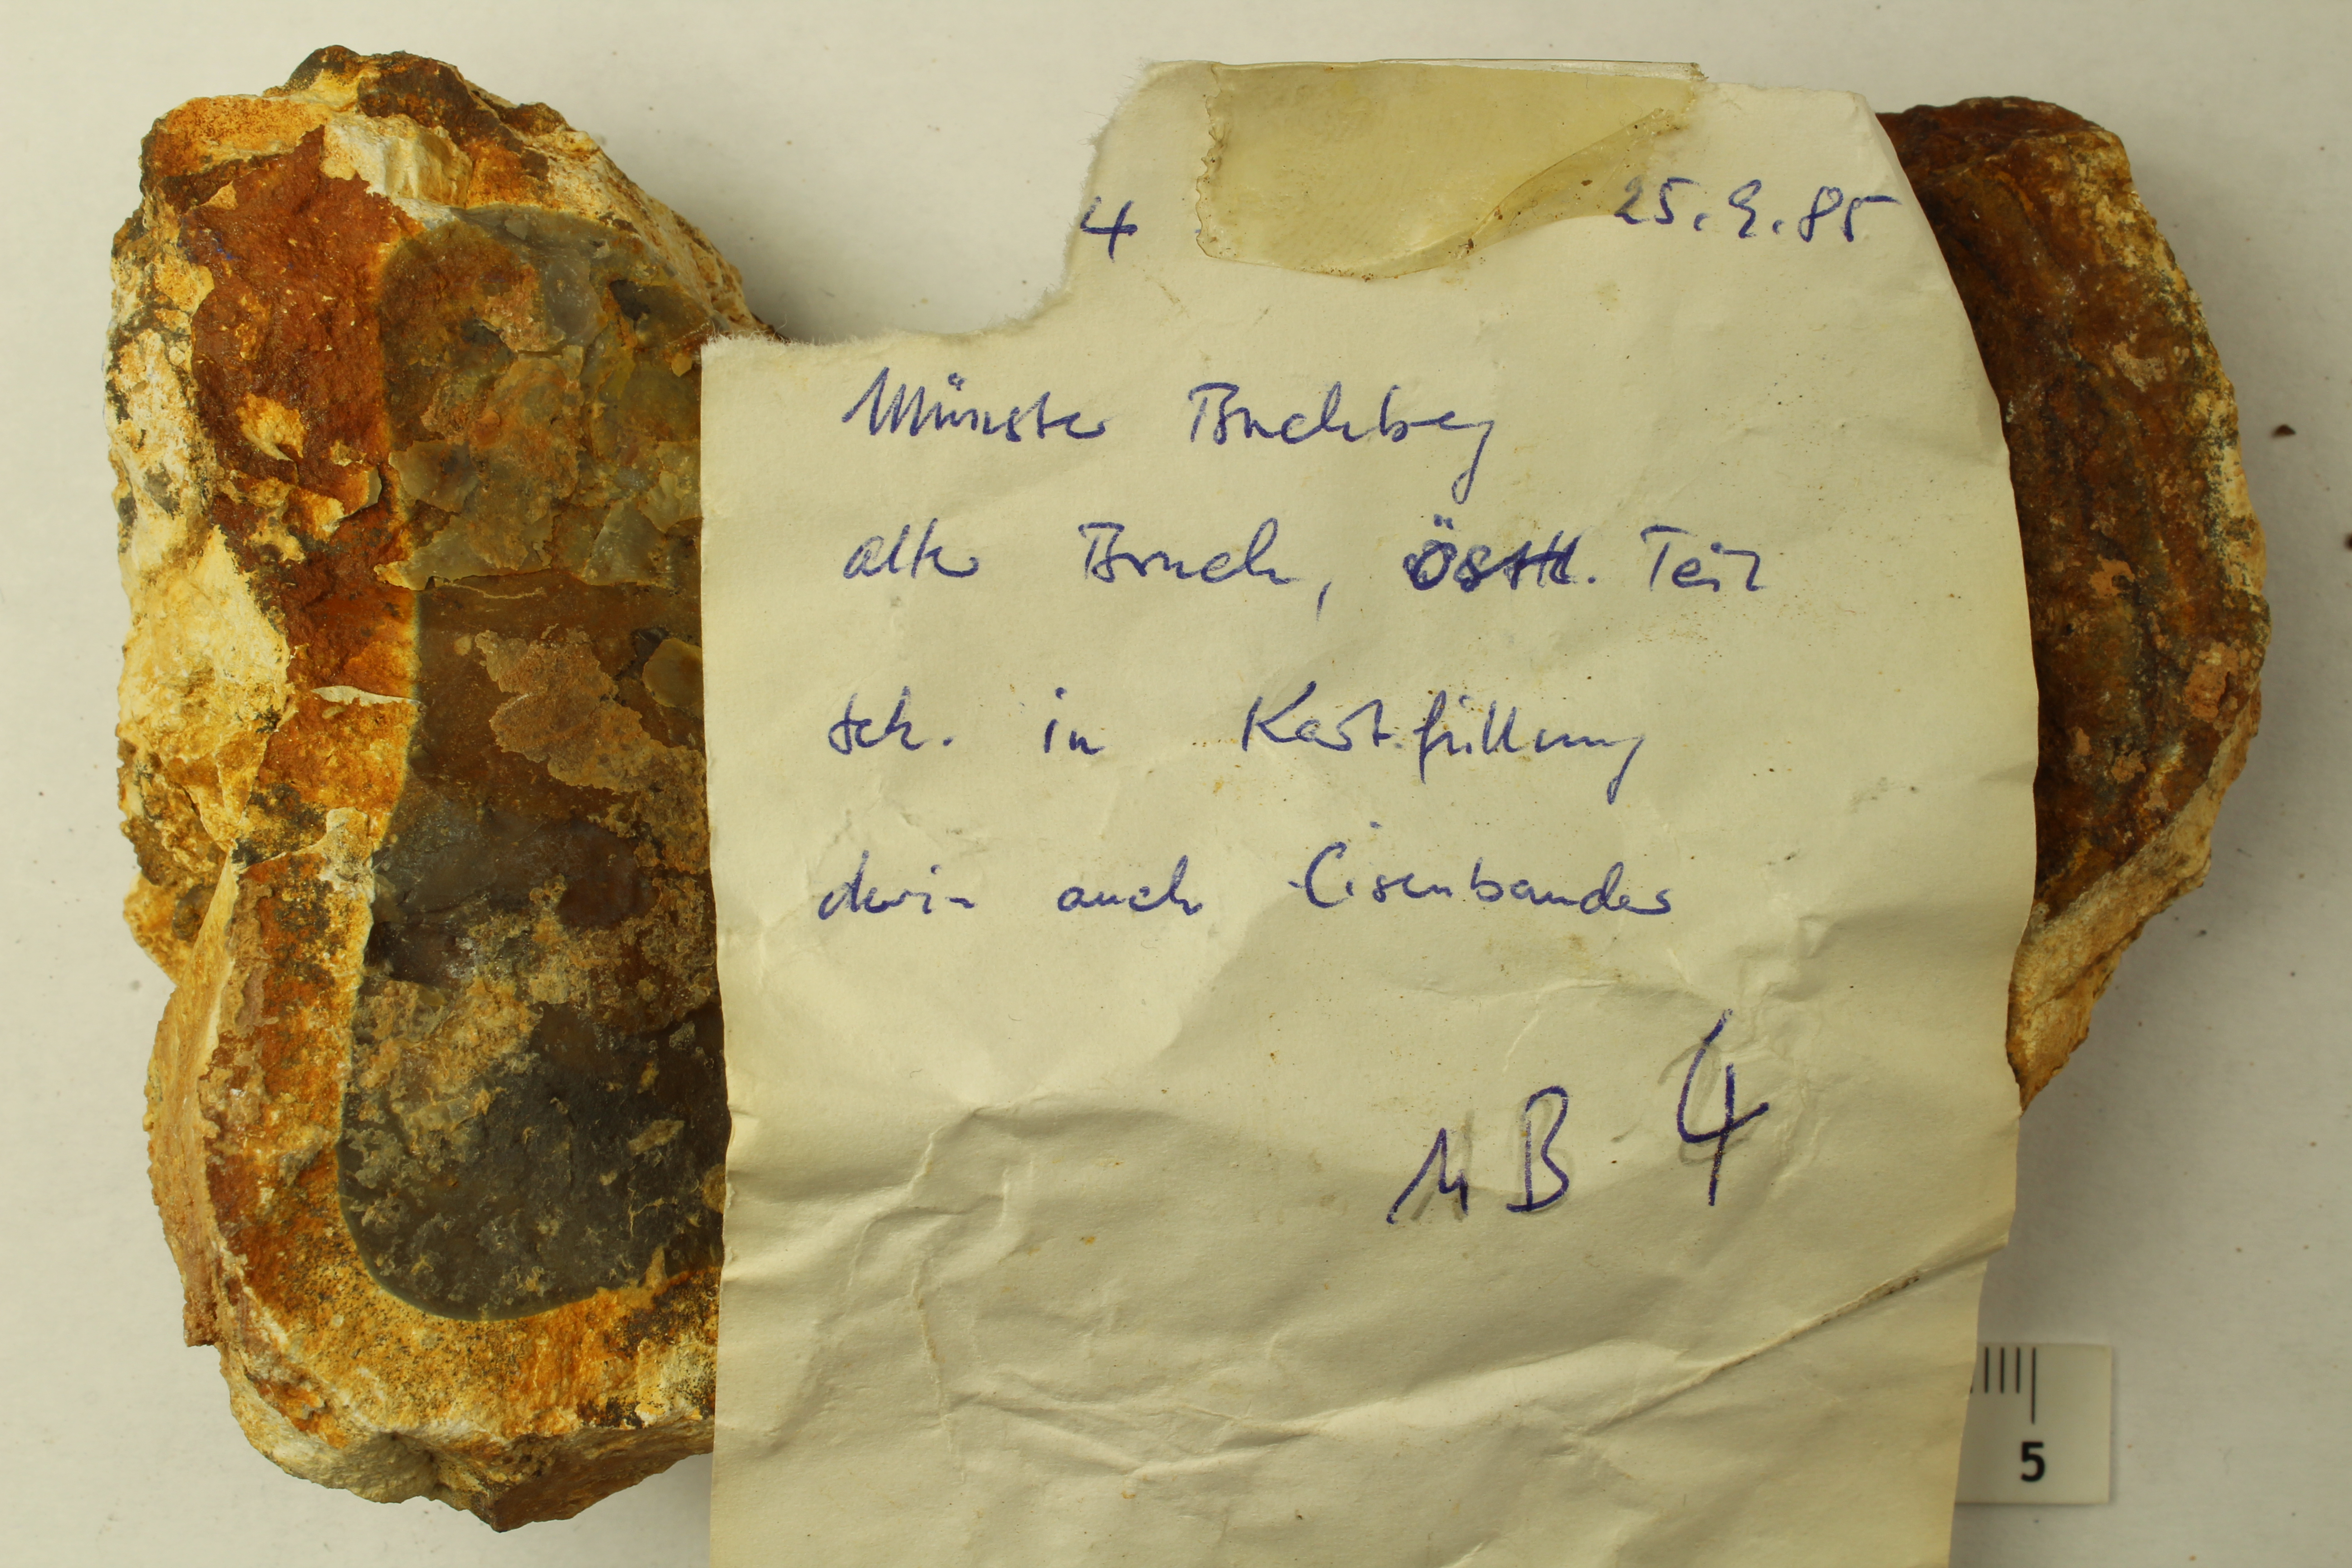 4 25.9.85
Münster Buchberg
alter Bruch, östl. Teil
in Karstfüllung
darin auch Eisenbänder
MB 4
5